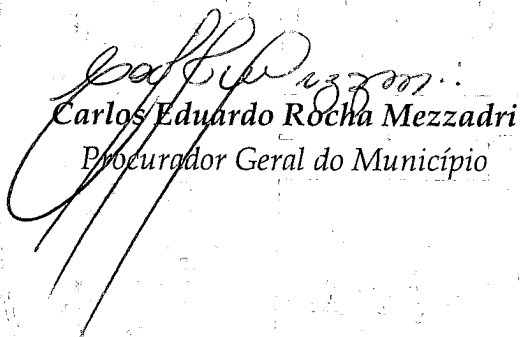 Carlos Eduardo Rocha Mezzadri
Procurador Geral do Município